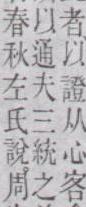 者以證从心客
以通夫三統之
春秋左氏說。周